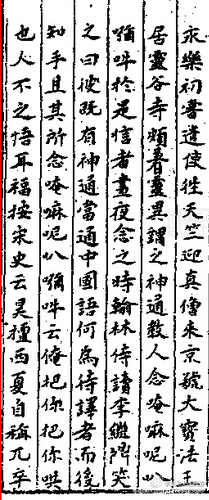 永樂初嘗遣使徃天竺迎真僧來京號大寶法王
居靈谷寺頻著靈異謂之神通教人念唵嘛呢叭
𡁠吽於是信者晝夜念之時翰林侍讀李繼鼎笑
之曰彼既有神通當通中國語何為待譯者而後
知乎且其所念唵嘛呢叭𡁠吽云俺把你把你哄
也人不之悟耳福按宋史云昊擅西夏自稱兀卒